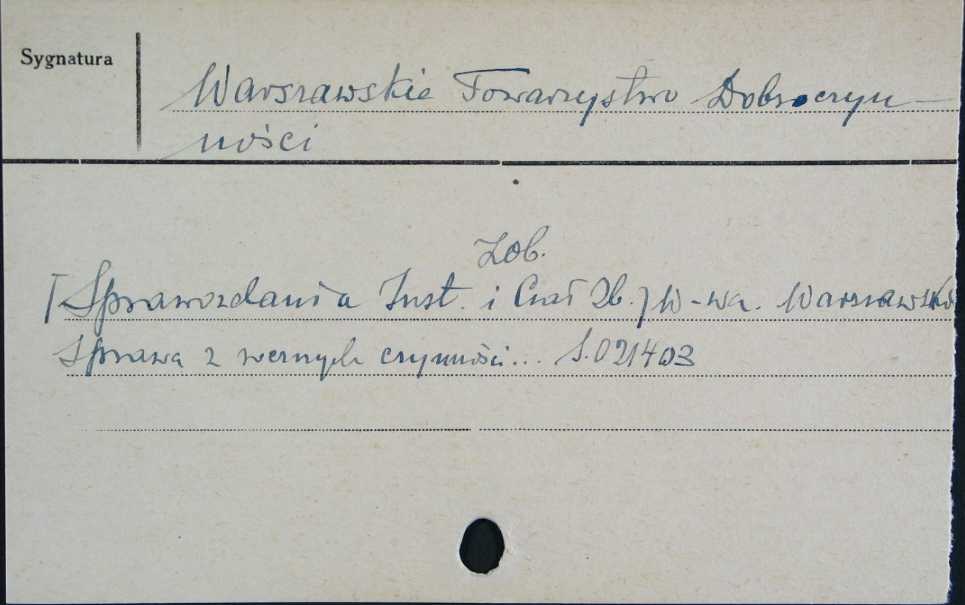 Sygnatura
Warszawskie Towarzystwo Dobroczyn-
ności
Zob.
[Sprawozdania Inst. i Ciał Zb.] W-wa. Warszawskie
Sprawa z czynności... S.021403